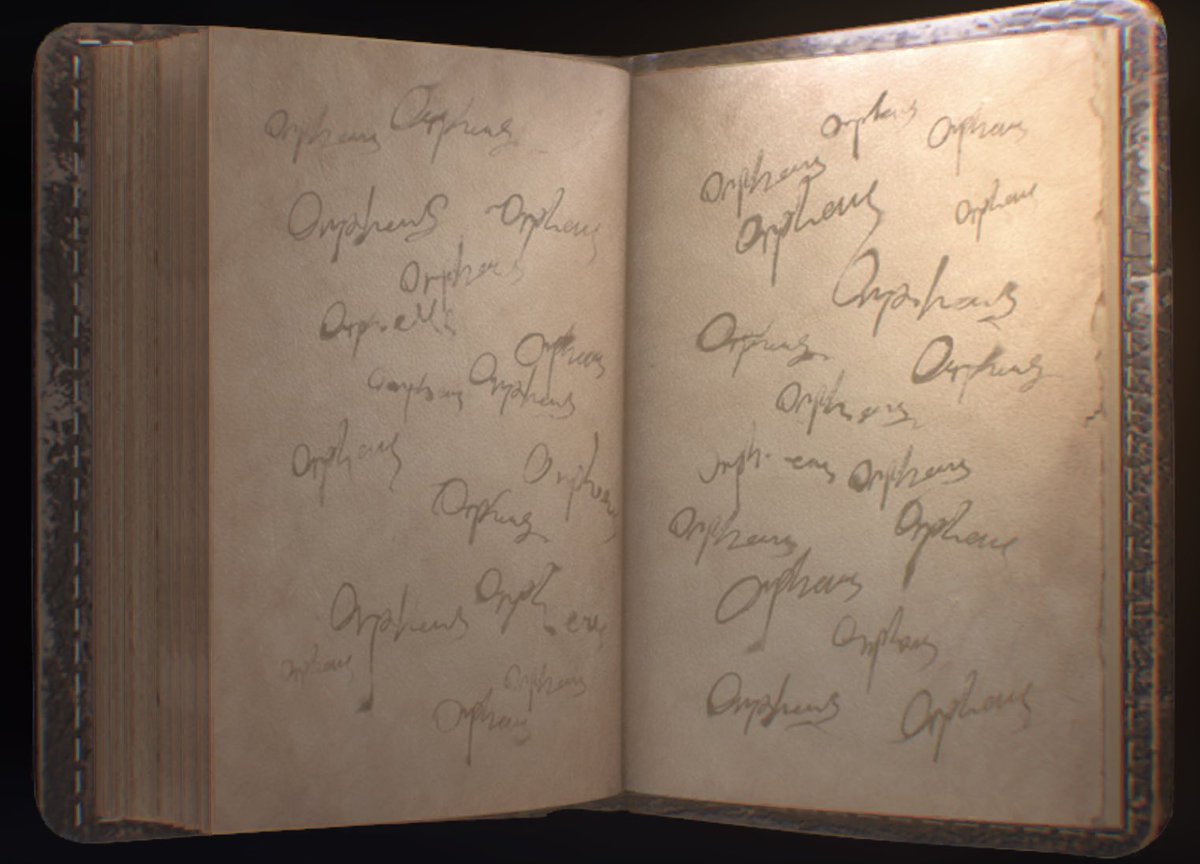 Orpheus Orpheus
Orpheus Orpheus
Orpheus
Orpheus
Orpheus
Orpheus Orpheus
Orpheus
Orpheus
Orpheus
Orpheus Orpheus
Orpheus
Orpheus
Orpheus
Orpheus Orpheus
Orpheus
Orpheus Orpheus
Orpheus
Orpheus Orpheus
Orpheus
Orpheus Orpheus
Orpheus Orpheus
Orpheus
Orpheus
Orpheus Orpheus